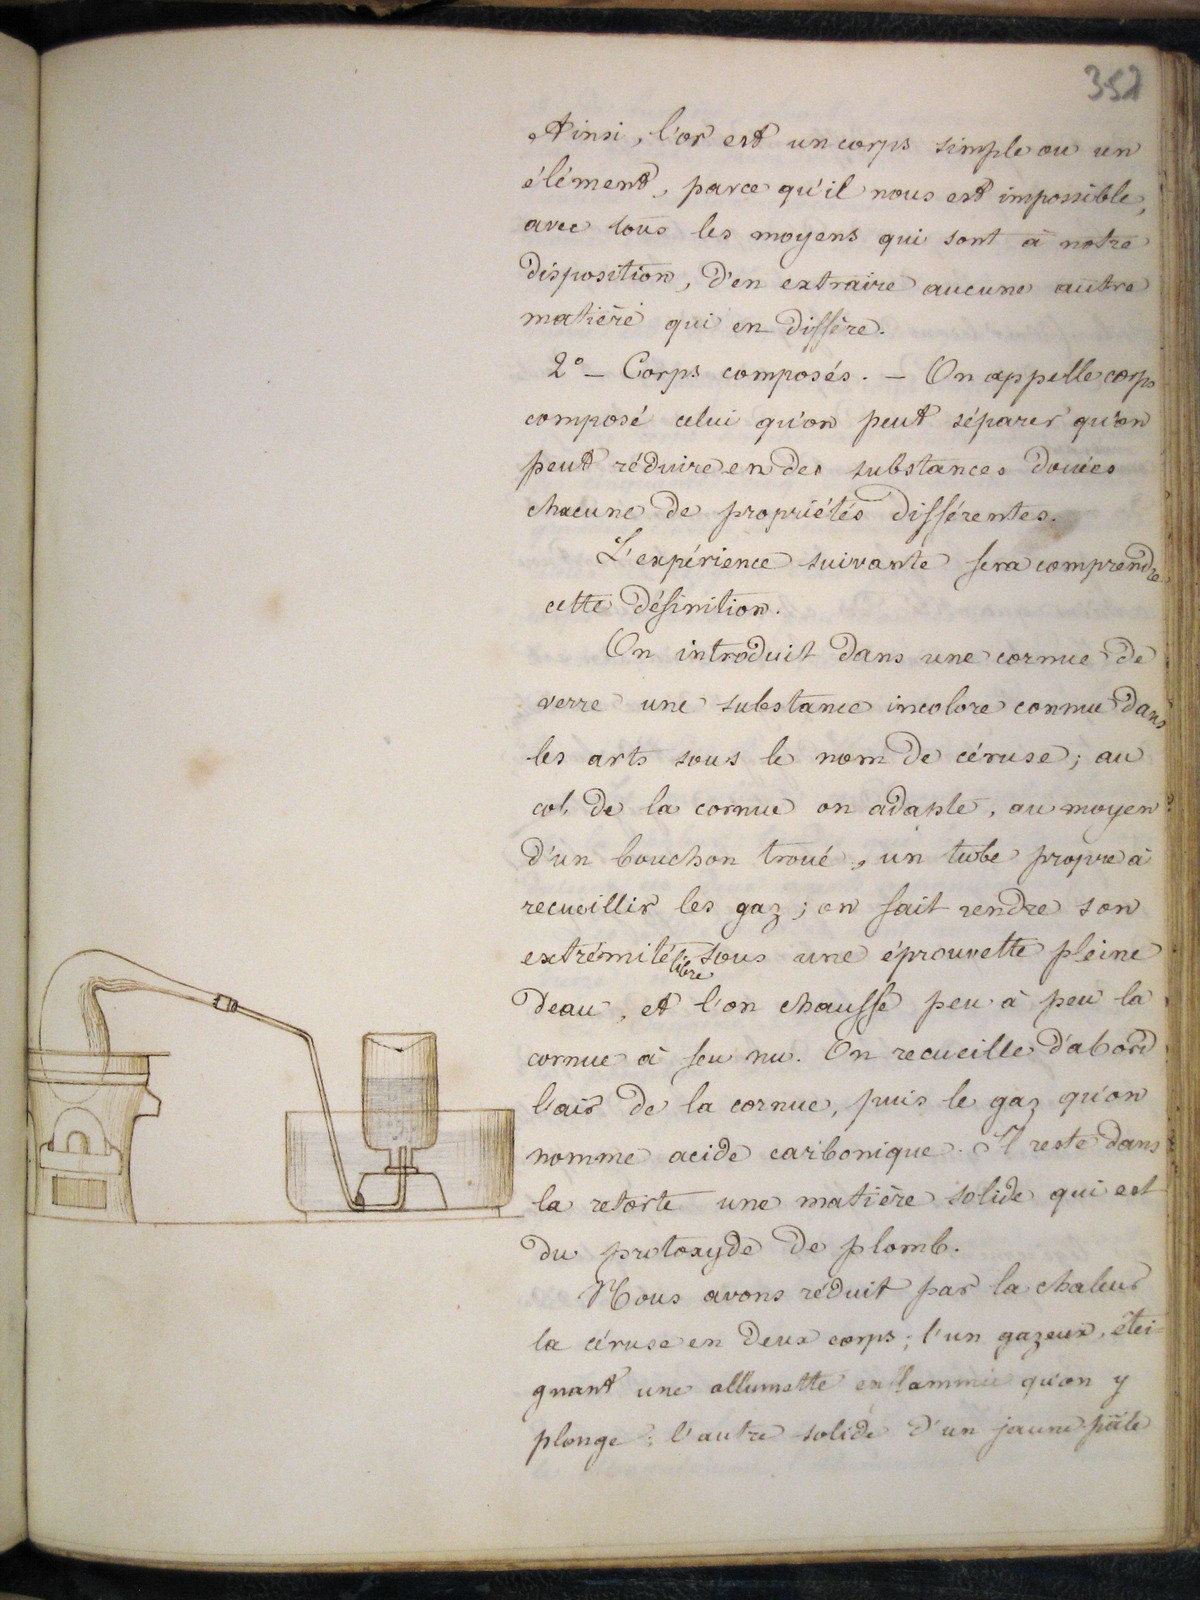 352
Ainsi, l'or est un corps simple ou un
élément, parce qu'il nous est impossible,
avec tous les moyens qui sont à notre
disposition, d'en extraire aucune autre
matière qui en diffère.
2° — Corps composés. — On appelle corps
composé celui qu'on peut séparer qu'on
peut réduire en des substances douées
chacune de propriétés différentes.
L'expérience suivante fera comprendre
cette définition.
On introduit dans une cornue de
verre une substance incolore connue dans
les arts sous le nom de céruse; au
col de la cornue on adapte, au moyen
d'un bouchon troué, un tube propre à
recueillir les gaz; on fait rendre son
extrémité libre sous une éprouvette pleine
deau, et l'on chauffe peu à peu la
cornue à feu nu. On recueille d'abord
l'air de la cornue, puis le gaz qu'on
nomme acide carbonique. Il reste dans
la retorte une matière solide qui est
du protoxyde de plomb.
Nous avons réduit par la chaleur
la céruse en deux corps; l'un gazeux, étei-
gnant une allumette enflammée qu'on y
plonge; l'autre solide d'un jaune pâle